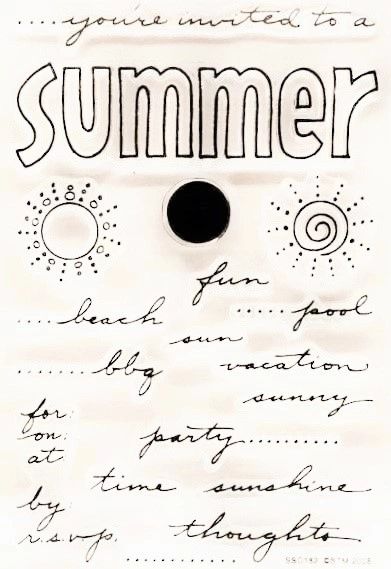 ....you're invited to a
summer
fun
....beach .....pool
sun
........bbq vacation
sunny
for:
on: party..........
at
time sunshine
by
r.s.v.p. thoughts
.............